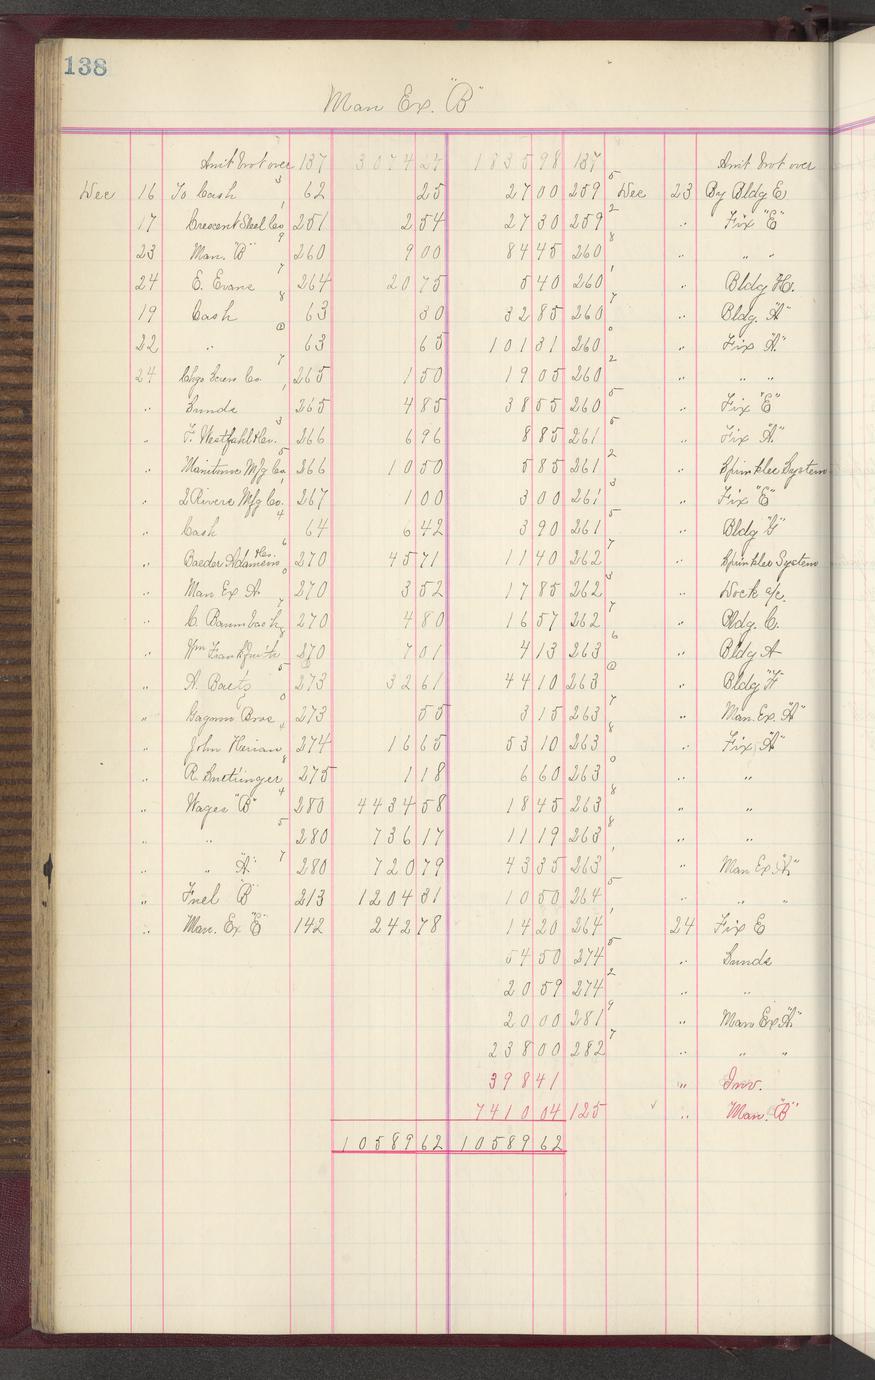 138
Man Ex. "B"
Amt brot over 137 3074 27 1835 98 137 Amt brot over
Dec 16 To Cash 3 62 25 27 00 259 5 Dec 23 By Bldg E
17 Crescent Steel Co 1 251 2 54 27 30 259 2 " Fix "E"
23 Man. "B" 9 260 9 00 84 45 260 8 " " "
24 E. Evans 7 264 20 75 5 40 260 1 " Bldg H.
19 Cash 8 63 30 32 85 260 7 " Bldg. "A"
22 " 0 63 65 101 31 260 0 " Fix "A"
24 Chgo Screw Co. 7 265 1 50 19 05 260 2 " " "
" Sunds 1 265 4 85 38 55 260 5 " Fix "E"
" F. Westfahl 3 266 6 96 8 85 261 5 " Fix "A"
" Manitowoc Mfg Co 5 266 10 50 5 85 261 2 " Sprinkler System
" 2 Rivers Mfg Co. 1 267 1 00 3 00 261 3 " Fix "E"
" Cash 4 64 6 42 3 90 261 5 " Bldg "G"
" Baeder Adamson 6 270 45 71 11 40 262 7 " Sprinkler System
" Man Ex A 0 270 3 52 17 85 262 3 " Dock a/c.
" C. Baumbach 7 270 4 80 16 57 262 7 " Bldg. C.
" Wm Frankfurth 8 270 7 01 4 13 263 6 " Bldg A
" A. Baets 5 273 32 61 44 10 263 0 " Bldg "F"
" Gagnon Bros 0 273 55 3 15 263 7 " Man. Ex. "A"
" John Herian 4 274 16 65 53 10 263 8 " Fix "A"
" R. Suettinger 8 275 1 18 6 60 263 0 " "
" Wages "B" 4 280 4434 58 18 45 263 8 " "
" " 5 280 736 17 11 19 263 8 " "
" " "A" 7 280 720 79 43 35 263 1 " Man Ex "A"
" Fuel "B" 213 1204 31 10 50 264 5 " " "
" Man. Ex "E" 142 242 78 14 20 264 1 24 Fix E
54 50 274 5 " Sunds
20 59 274 2 " "
20 00 281 9 " Man Ex "A"
238 00 282 7 " " "
398 41 " Inv.
7410 04 125 " Man. "B"
10589 62 10589 62